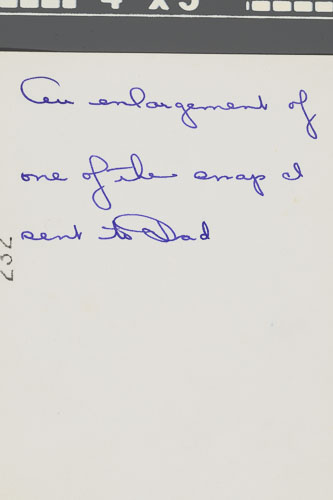 An enlargement of
one of the snap I
sent to Dad
232